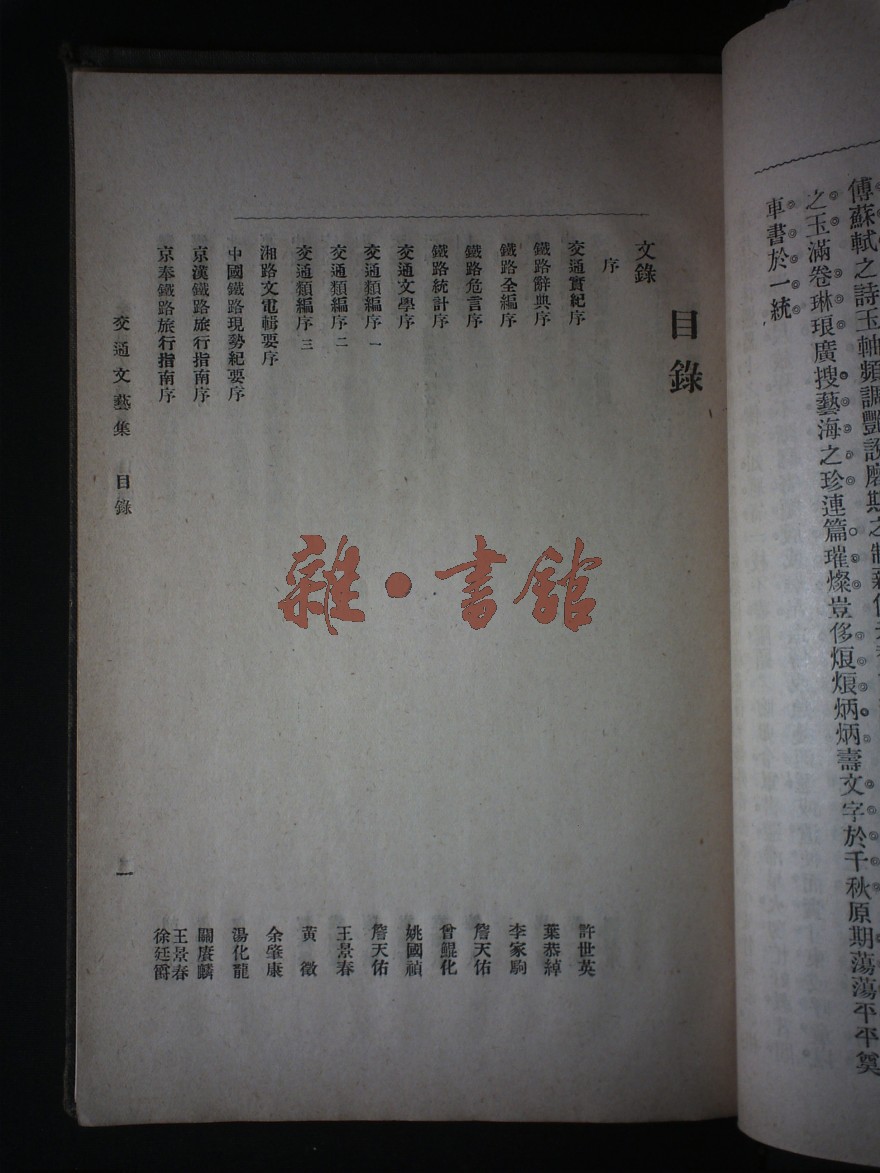 傳蘇軾之詩玉軸頻調豔說
之玉滿卷琳琅廣搜藝海之珍連篇璀燦豈侈烺烺炳炳壽文字於千秋原期蕩蕩平平奠
車書於一統
目錄
文錄
序
交通實紀序 許世英
鐵路辭典序 葉恭綽
鐵路全編序 李家駒
鐵路危言序 詹天佑
鐵路統計序 曾鯤化
交通文學序 姚國禎
交通類編序一 詹天佑
交通類編序二 王景春
交通類編序三 黃徵
湘路文電輯要序 余肇康
中國鐵路現勢紀要序 湯化龍
京漢鐵路旅行指南序 關賡麟
京奉鐵路旅行指南序 王景春 徐廷爵
交通文藝集 目錄
一
雜·書館